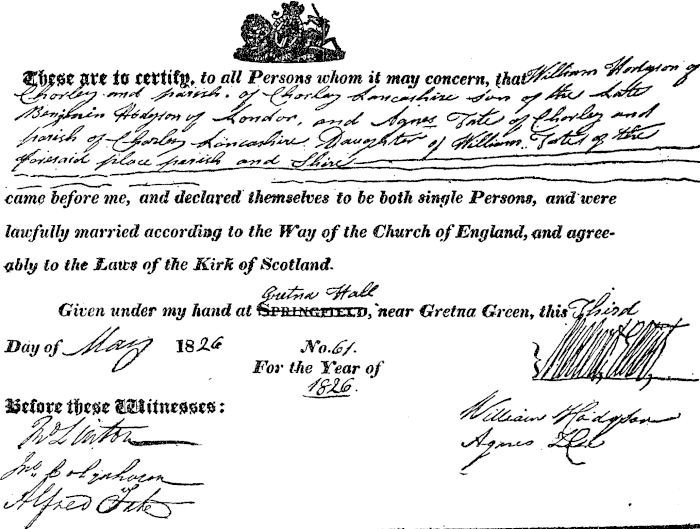 These are to certify, to all Persons whom it may concern, that William Hodgson of
Chorley and parish of Chorley Lancashire son of the Late
Benjamin Hodgson of London, and Agnes Tate of Chorley and
parish of Chorley Lancashire Daughter of William Tate of the
foresaid place parish and Shire
came before me, and declared themselves to be both single Persons, and were
lawfully married according to the Way of the Church of England, and agree-
ably to the Laws of the Kirk of Scotland.
Gretna Hall
Given under my hand at SPRINGFIELD, near Gretna Green, this Third
Day of May 1826 No. 61.
For the Year of
1826.
Before these Witnesses:
William Hodgson
Linton
Agnes
Alfred Tate